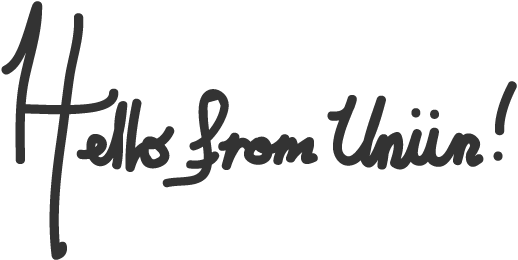 Hello from Uniin!